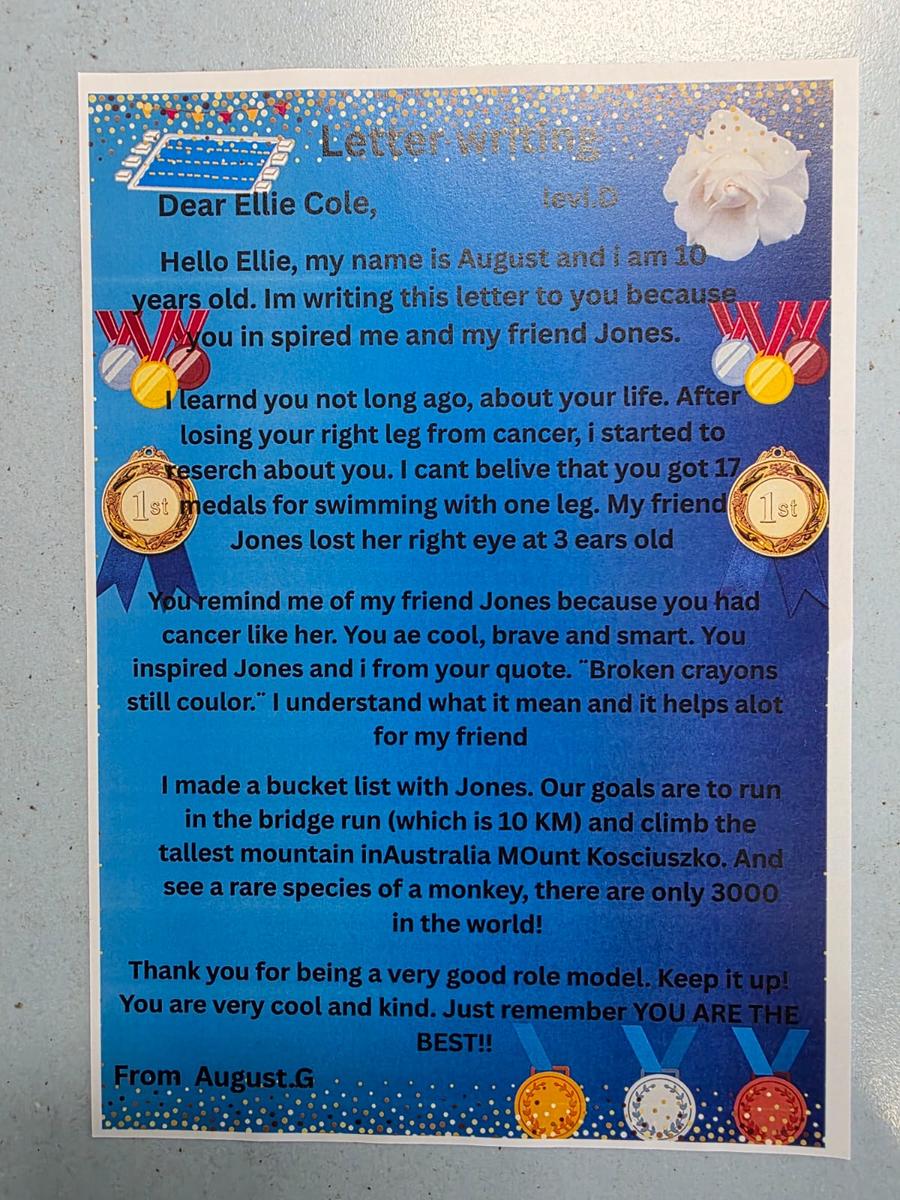 Letter writing
levi.D
Dear Ellie Cole,
Hello Ellie, my name is August and i am 10
years old. Im writing this letter to you because
you in spired me and my friend Jones.
I learnd you not long ago, about your life. After
losing your right leg from cancer, i started to
reserch about you. I cant belive that you got 17
medals for swimming with one leg. My friend
Jones lost her right eye at 3 ears old
1st
1st
You remind me of my friend Jones because you had
cancer like her. You ae cool, brave and smart. You
inspired Jones and i from your quote. ¨Broken crayons
still coulor.¨ I understand what it mean and it helps alot
for my friend
I made a bucket list with Jones. Our goals are to run
in the bridge run (which is 10 KM) and climb the
tallest mountain inAustralia MOunt Kosciuszko. And
see a rare species of a monkey, there are only 3000
in the world!
Thank you for being a very good role model. Keep it up!
You are very cool and kind. Just remember YOU ARE THE
BEST!!
From August.G